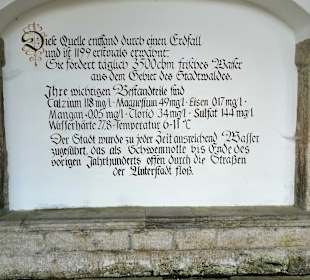 Diese Quelle entstand durch einen Erdfall
und ist 1199 erstmals erwähnt.
Sie fördert täglich 3500 cbm frisches Wasser
aus dem Gebiet des Stadtwaldes.
Ihre wichtigen Bestandteile sind
Calzium 118 mg/l · Magnesium 49 mg/l · Eisen 0.17 mg/l ·
Mangan · 0.05 mg/l · Clorid 34 mg/l · Sulfat 144 mg/l
Wasserhärte 27.8 · Temperatur 6-11 °C
Der Stadt wurde zu jeder Zeit ausreichend Wasser
zugeführt, das als Schwemmotte bis Ende des
vorigen Jahrhunderts offen durch die Straßen
der Unterstadt floß.